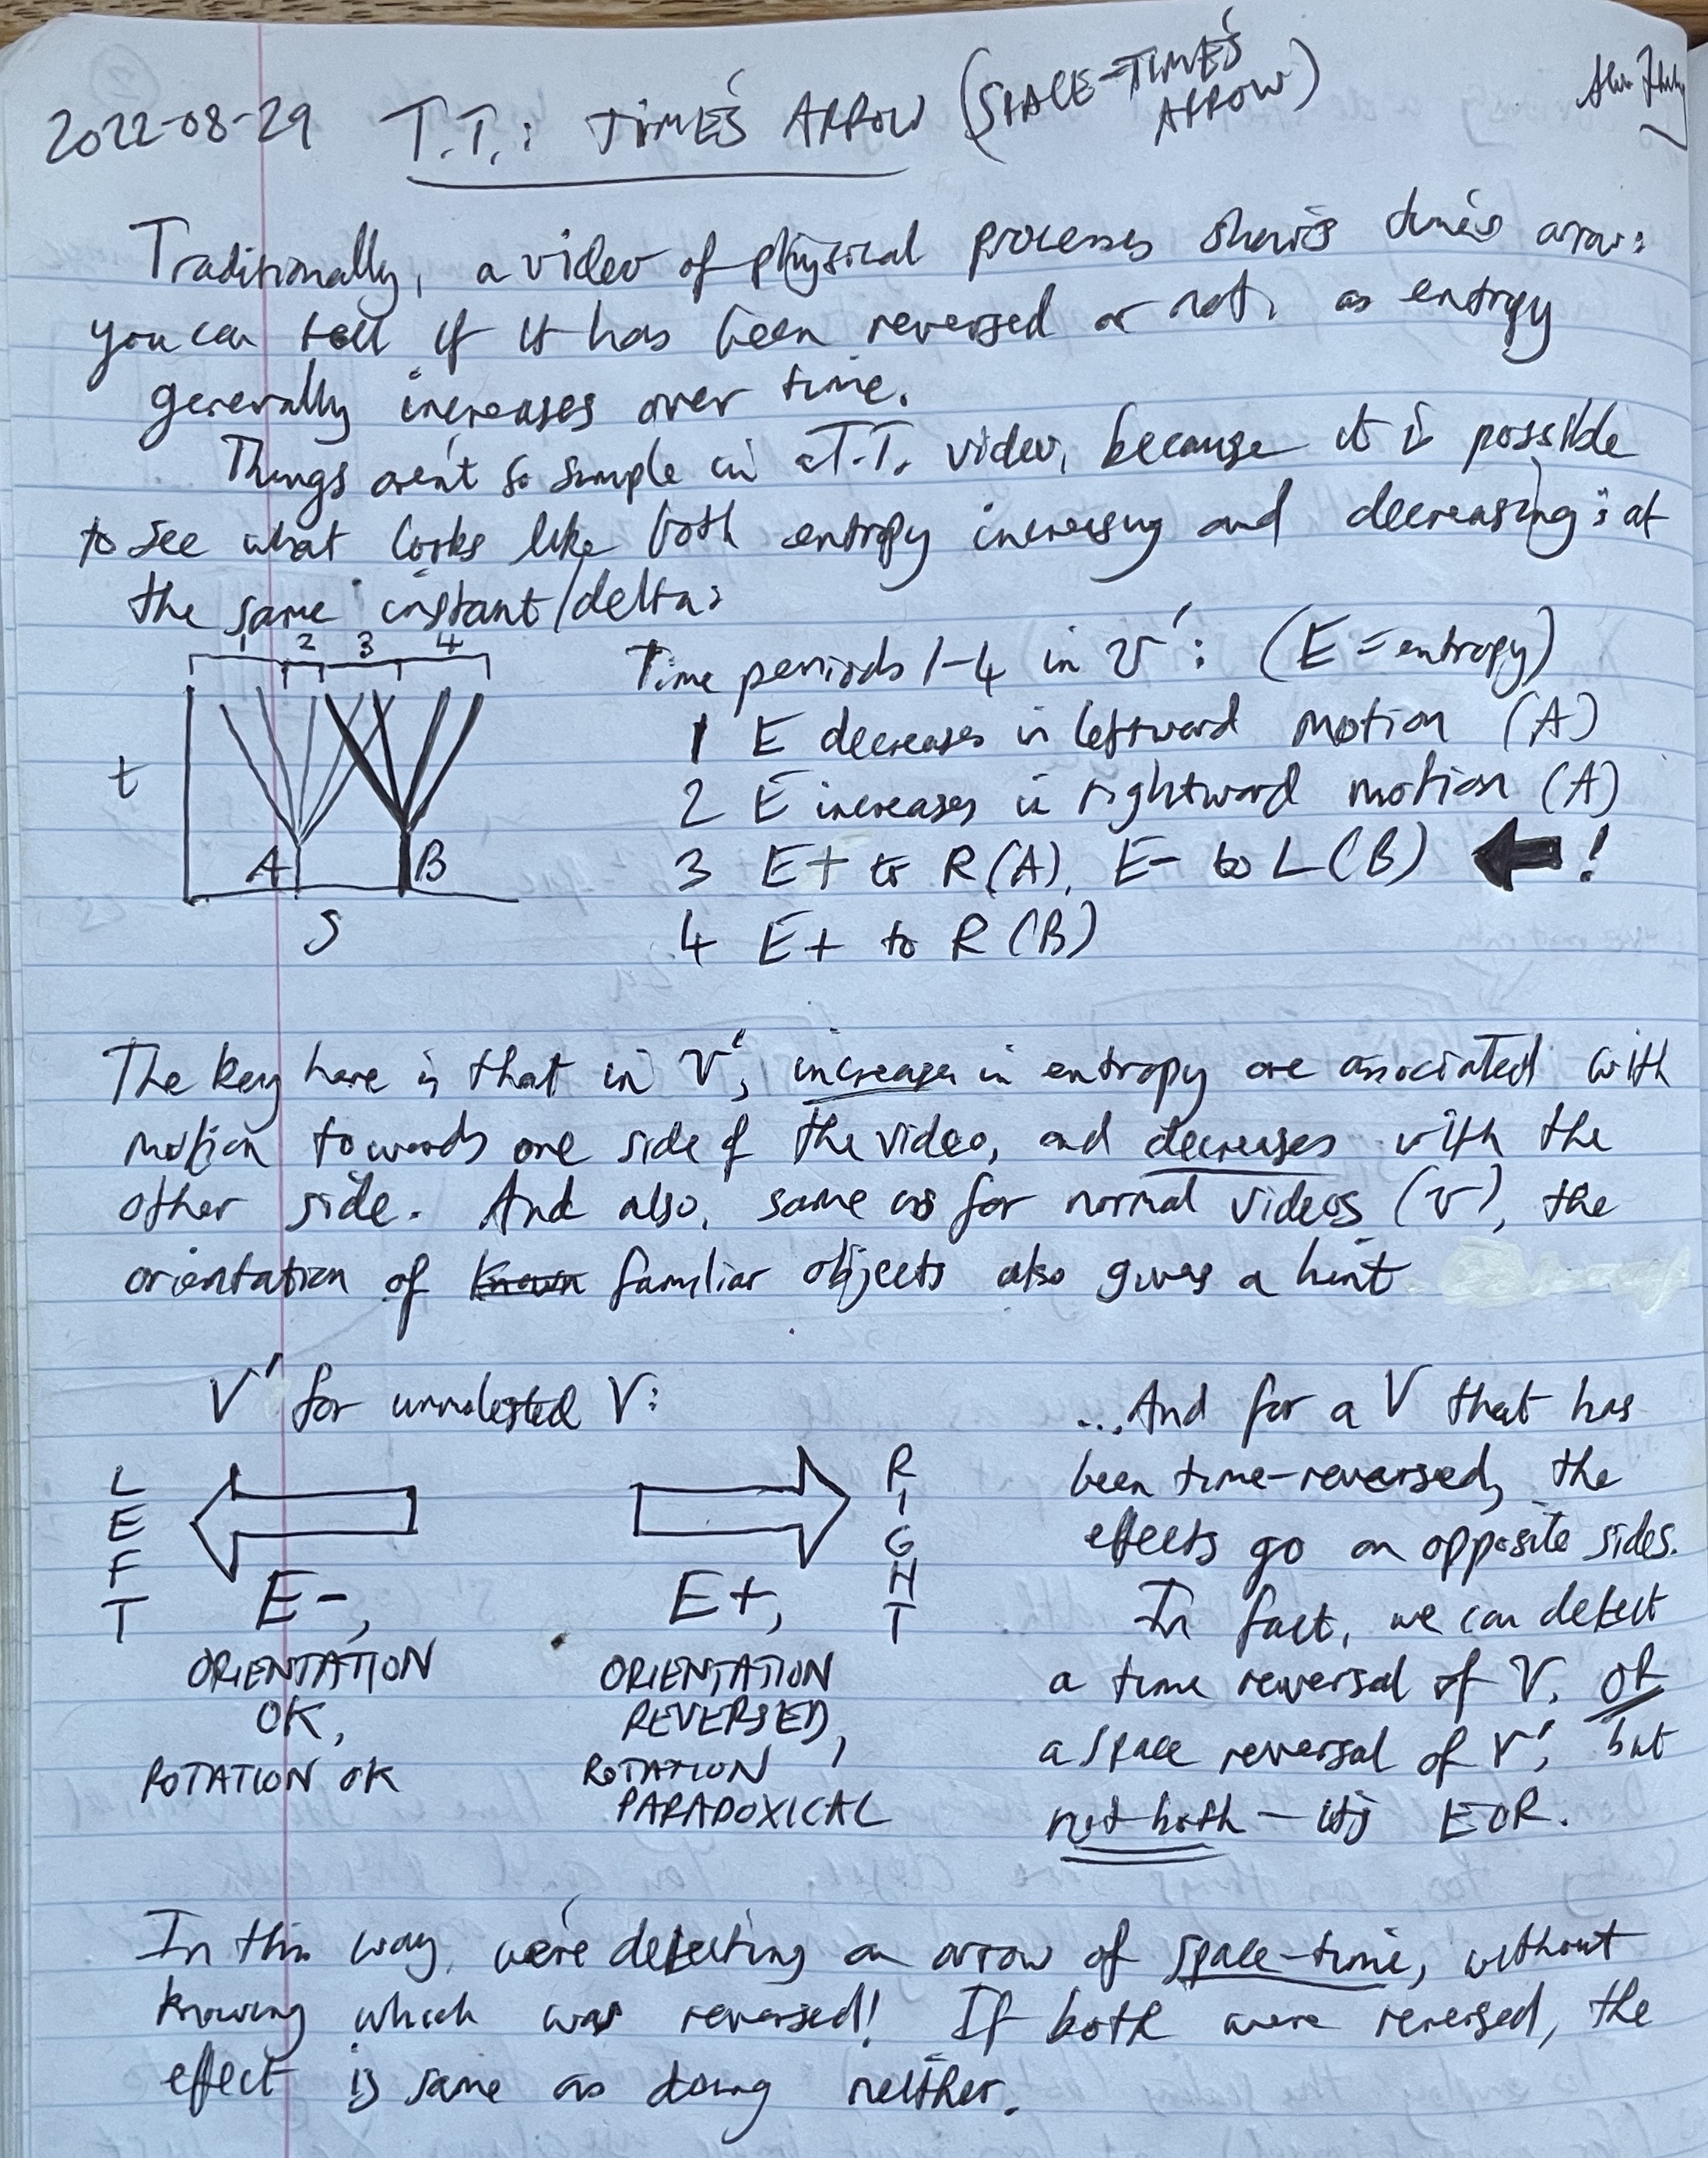 2022-08-29 T.T.: TIME'S ARROW (SPACE-TIME'S ARROW)
Traditionally, a video of physical processes shows time's arrow:
you can tell if it has been reversed or not, as entropy
generally increases over time.
Things aren't so simple in a T.T. video, because it is possible
to see what looks like both entropy increasing and decreasing; at
the same instant/delta:
1 2 3 4
t
A B
S
Time periods 1-4 in V': (E = entropy)
1 E decreases in leftward motion (A)
2 E increases in rightward motion (A)
3 E+ to R(A), E- to L(B) !
4 E+ to R(B)
The key here is that in V', increases in entropy are associated with
motion towards one side of the video, and decreases with the
other side. And also, same as for normal videos (V), the
orientation of known familiar objects also gives a hint
V' for unmolested V:
LEFT
E-,
ORIENTATION
OK,
ROTATION OK
RIGHT
E+,
ORIENTATION
REVERSED,
ROTATION
PARADOXICAL
...And for a V that has
been time-reversed, the
effects go on opposite sides.
In fact, we can detect
a time reversal of V, or
a space reversal of V', but
not both - it's EOR.
In this way, we're detecting an arrow of space-time, without
knowing which was reversed! If both were reversed, the
effect is same as doing neither.